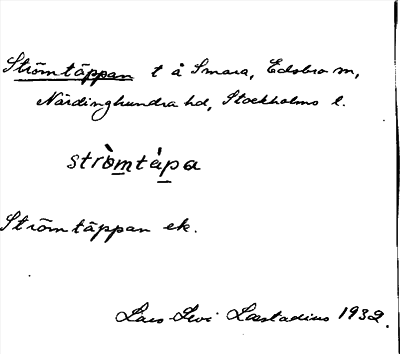 Strömtäppan t å Smara, Edsbro sn,
Närdinghundra hd, Stockholms l.
stròmtàpa
Strömtäppan ek.
Lars Levi Læstadius 1932.